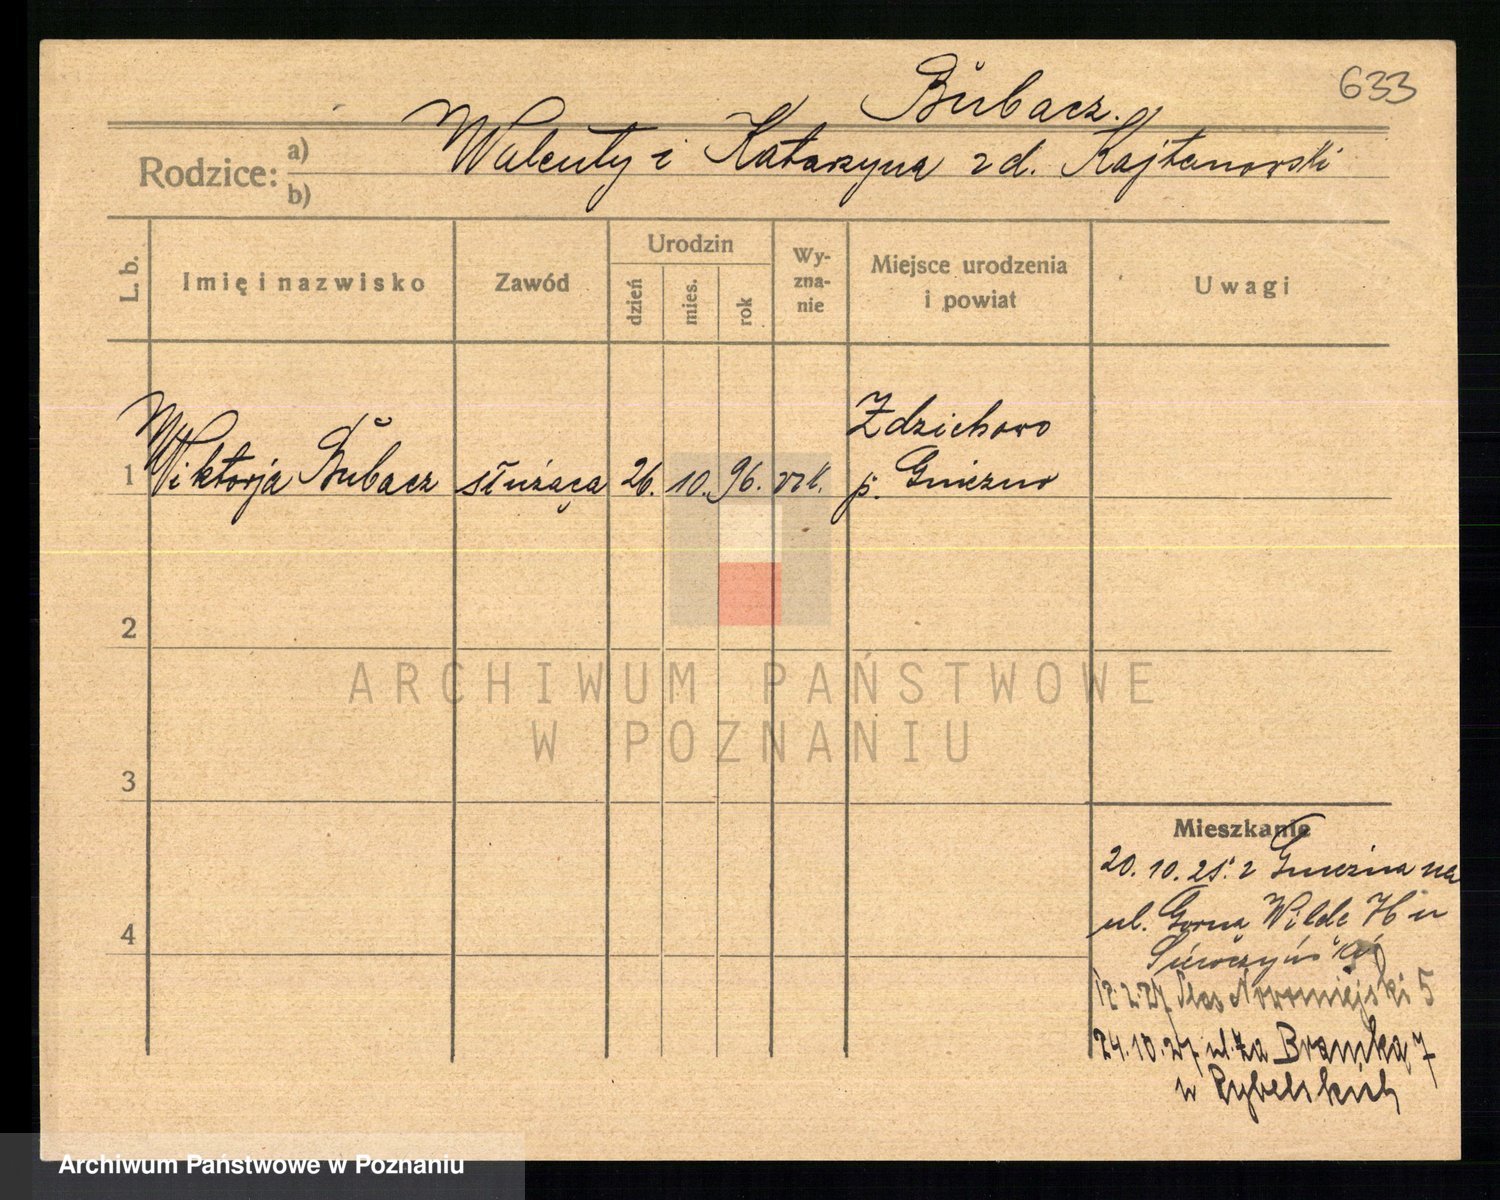 633
Bubacz.
Rodzice: a) b) Walenty i Katarzyna zd. Kajtanowski
L. b.
Imię i nazwisko
Zawód
Urodzin
dzień
mies.
rok
Wy-
zna-
nie
Miejsce urodzenia
i powiat
Uwagi
1 Wiktorja Bubacz służąca 26. 10. 96. rzk. Zdziechowo
p. Gniezno
2
3
4
Mieszkanie
20. 10. 25. z Gniezna na
ul. Górna Wilde
12.2.27 Plac Nowomiejski 5
24.10.27 ul. Za Bramką 7
u Rybelskich
ARCHIWUM PAŃSTWOWE
W POZNANIU
Archiwum Państwowe w Poznaniu